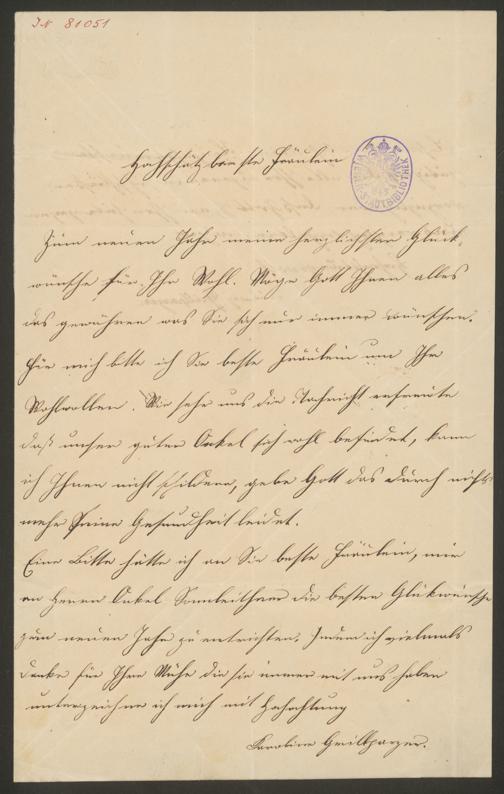 IN 81051
Hochschätzbarste Fräulein
WIENER STADTBIBLIOTHEK
Zum neuen Jahr meine herzlichsten Glück-
wünsche für Ihr Wohl. Möge Gott Ihnen alles
das gewähren was Sie sich nur immer wünschen.
Für mich bitte ich Sie beste Fräulein um Ihr
Wohlwollen. Wie sehr uns die Nachricht erfreute
daß unser guter Onkel sich wohl befindet, kann
ich Ihnen nicht schildern, gebe Gott das durch nichts
mehr seine Gesundheit leidet.
Eine Bitte hätte ich an Sie beste Fräulein, mir
an Herrn Onkel Sonnleithner die besten Glükwünsche
zum neuen Jahr zu entrichten. Indem ich vielmals
danke für Ihre Mühe die sie immer mit uns haben
unterzeichne ich mich mit Hochachtung
Karoline Grillparzer.